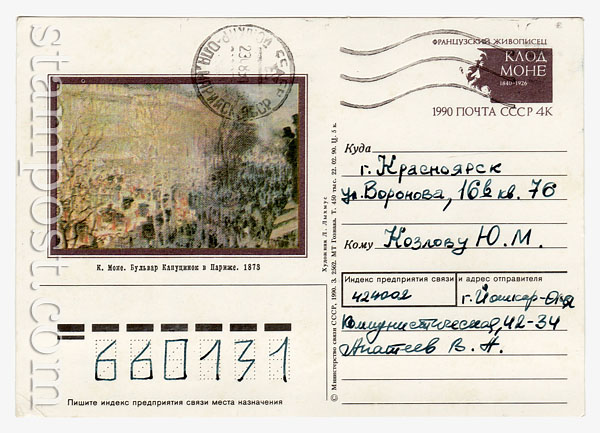 ФРАНЦУЗСКИЙ ЖИВОПИСЕЦ
КЛОД
МОНЕ
1840-1926
1990 ПОЧТА СССР 4К
К. Моне. Бульвар Капуцинок в Париже. 1873
Куда
г. Красноярск
ул. Воронова, 16в кв. 76
Кому Козлову Ю. М.
Индекс предприятия связи и адрес отправителя
424002 г. Йошкар-Ола
Коммунистическая, 42-34
В. А.
660131
Пишите индекс предприятия связи места назначения
© Министерство связи СССР, 1990. З. 2562. МТ Гознака. Т. 450 тыс. 22. 02. 90. Ц. 5 к.
Художник Л.
stampost.com